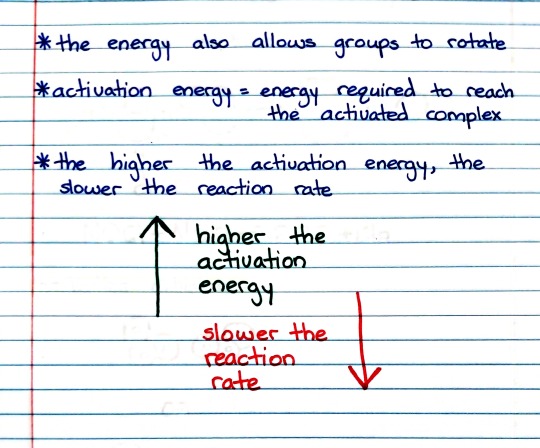 *the energy also allows groups to rotate
*activation energy = energy required to reach
the activated complex
*the higher the activation energy, the
slower the reaction rate
higher the
activation
energy
slower the
reaction
rate